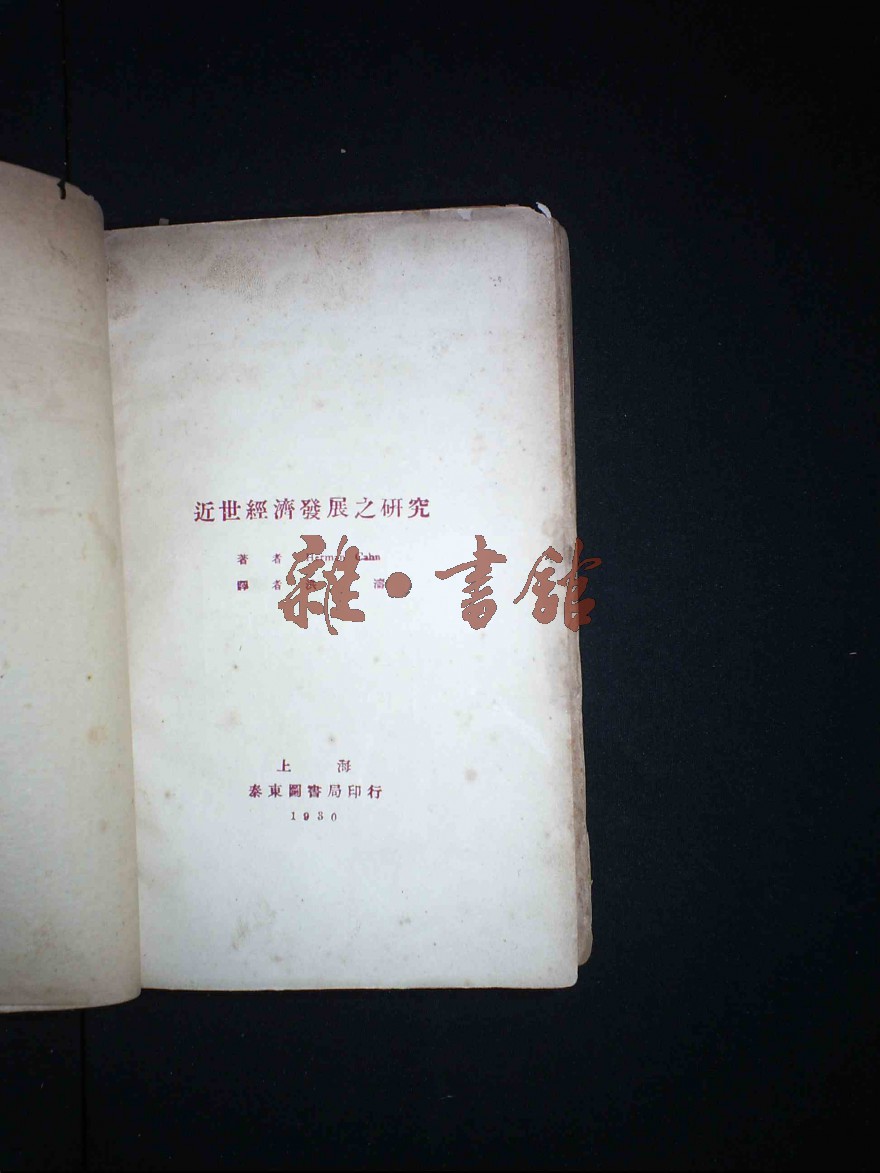 近世經濟發展之研究
著者 Herman Cahn
譯者 濤
雜·書館
上海
泰東圖書局印行
1930